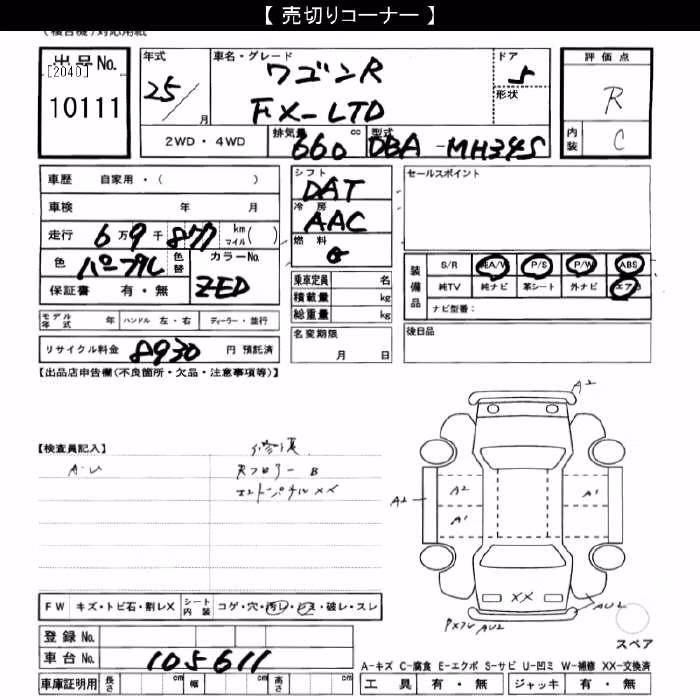 【 売切りコーナー 】
(複合機)対応用紙
出品No.
[2040]
10111
年式
25 / 月
車名・グレード
ワゴンR
FX-LTD
ドア
5
形状
評価点
R
内装
C
2WD・4WD
排気量 660 cc
型式 DBA-MH34S
車歴 自家用・( )
車検 年 月
走行 6万9千877 km マイル( )
色 パープル 色替
カラーNo. ZED
保証書 有・無
シフト
DAT
冷房
AAC
燃料
G
乗車定員 名
積載量 kg
総重量 kg
セールスポイント
装備品
S/R 純A/V P/S P/W ABS
純TV 純ナビ 革シート 外ナビ エアB
ナビ型番:
モデル年式 年 ハンドル 左・右 ディーラー・並行
リサイクル料金 8930 円 預託済
名変期限
月 日
後日品
【出品店申告欄(不良箇所・欠品・注意事項等)】
A2
【検査員記入】
修復
A-U
Rフロアー B
エンドパネルXX
A2
A2
A1
A1
XX
PXアレ AU2
AU2
スペア
FW キズ・トビ石・割レX
シート内装 コゲ・穴・汚レ・シミ・破レ・スレ
登録No.
車台No. 105611
A-キズ C-腐食 E-エクボ S-サビ U-凹ミ W-補修 XX-交換済
車庫証明用 長さ cm 幅 cm 高さ cm
工具 有・無 ジャッキ 有・無